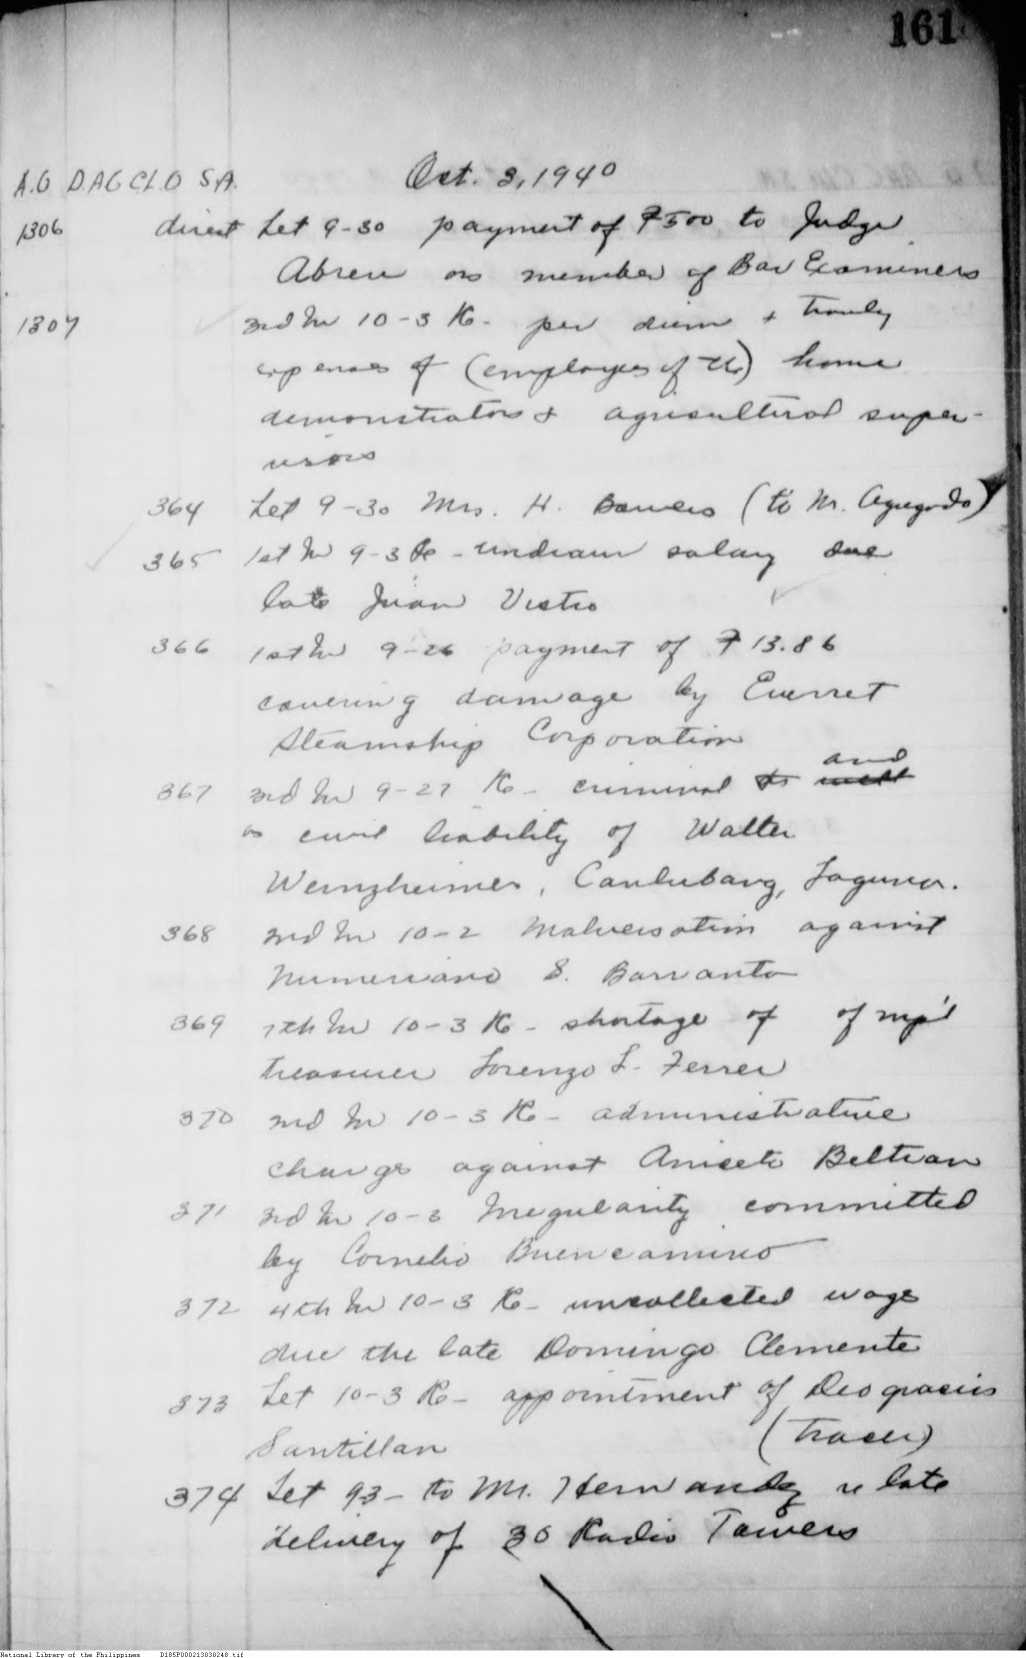 161
A.G DAG CLO SA. Oct. 3, 1940
1306 direct Let 9-30 payment of ₱500 to Judge
Abreu as member of Bar Examiners
1307 3rd In 10-3 Re- per diem & travlg
expenses of (employes of the) home
demonstrators & agricultural super-
visors
364 Let 9-30 Mrs. H. Bowers (to Mr. Agregado)
365 1st In 9-3 Re - undrawn salary due
late Juan Vistro
366 1st In 9-26 payment of ₱13.86
covering damage by Everret
Steamship Corporation
and
367 3rd In 9-27 Re- criminal as well
as civil liability of Walter
Weinzheimer, Canlubang, Laguna.
368 2nd In 10-2 Malversation against
Numeriano S. Barranta
369 7th In 10-3 Re- shortage of of mp'l
treasurer Lorenzo L. Ferrer
370 2nd In 10-3 Re- administrative
charge against Aniceto Beltran
371 3rd In 10-3 Irregularity committed
by Cornelio Buencamino
372 4th In 10-3 Re- uncollected wage
due the late Domingo Clemente
373 Let 10-3 Re- appointment of Deogracias
Santillan (tracer)
374 Let 93- to Mr. Hernandez re late
delivery of 30 Radio Towers
National Library of the Philippines D185P000213838248.tif